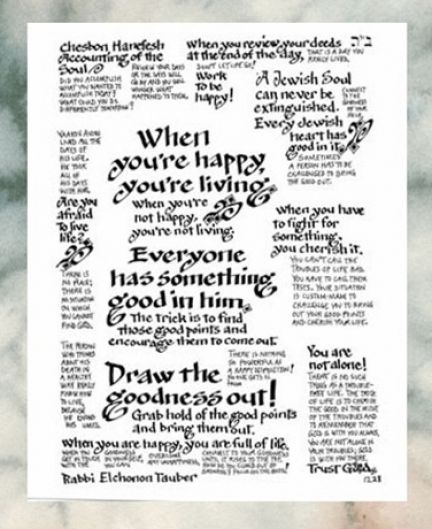 ב"ה
Cheshbon Hanefesh
Accounting of the
Soul
DID YOU ACCOMPLISH
WHAT YOU WANTED TO
ACCOMPLISH TODAY?
WHAT COULD YOU DO
DIFFERENTLY TOMORROW?
REVIEW YOUR DAYS
OR THE DAYS WILL
GO BY AND YOU WILL
WONDER WHAT
HAPPENED TO THEM.
When you review your deeds
at the end of the day,
THAT IS A DAY YOU
REALLY LIVED.
DON'T LET GO!
Work
To be
happy!
A Jewish Soul
can never be
extinguished.
Every Jewish
heart has
good in it.
SOMETIMES
A PERSON HAS TO BE
CHALLENGED TO BRING
THE GOOD OUT.
LIVED ALL THE
DAYS OF
HIS LIFE.
HE TOOK
ALL OF
HIS DAYS
WITH HIM.
Are you
afraid
To live
life?
THERE IS
NO PLACE,
THERE IS
NO SITUATION
IN WHICH
YOU CANNOT
FIND GOD.
THE PERSON
WHO THINKS
ABOUT HIS
DEATH IN
A HEALTHY
WAY REALLY
KNOWS HOW
TO LIVE,
BECAUSE
HE
HIS LIFE.
When
you're happy,
you're living.
When you're
not happy,
you're not living.
Everyone
has something
good in him.
The trick is to find
those good points and
encourage them to come out.
When you have
to fight for
something,
you cherish it.
YOU CAN'T CALL THE
TROUBLES OF LIFE BAD.
YOU HAVE TO CALL THEM
TESTS. YOUR SITUATION
IS CUSTOM-MADE TO
CHALLENGE YOU TO BRING
OUT YOUR GOOD POINTS
AND CHERISH YOUR LIFE.
THERE IS NOTHING
SO POWERFUL AS
A HAPPY DISPOSITION!
Draw the
goodness out!
Grab hold of the good points
and bring them out.
When you are happy, you are full of life.
Rabbi Elchonon Tauber
You are
not alone!
THERE IS NO SUCH
THING AS A TROUBLE-
FREE LIFE. THE TRICK
OF LIFE IS TO CHERISH
THE GOOD IN THE MIDST
OF THE TROUBLES AND
TO REMEMBER THAT
GOD IS WITH YOU ALWAYS.
YOU ARE NOT ALONE IN
YOUR TROUBLES; GOD
IS WITH YOU IN THEM.
Trust God.